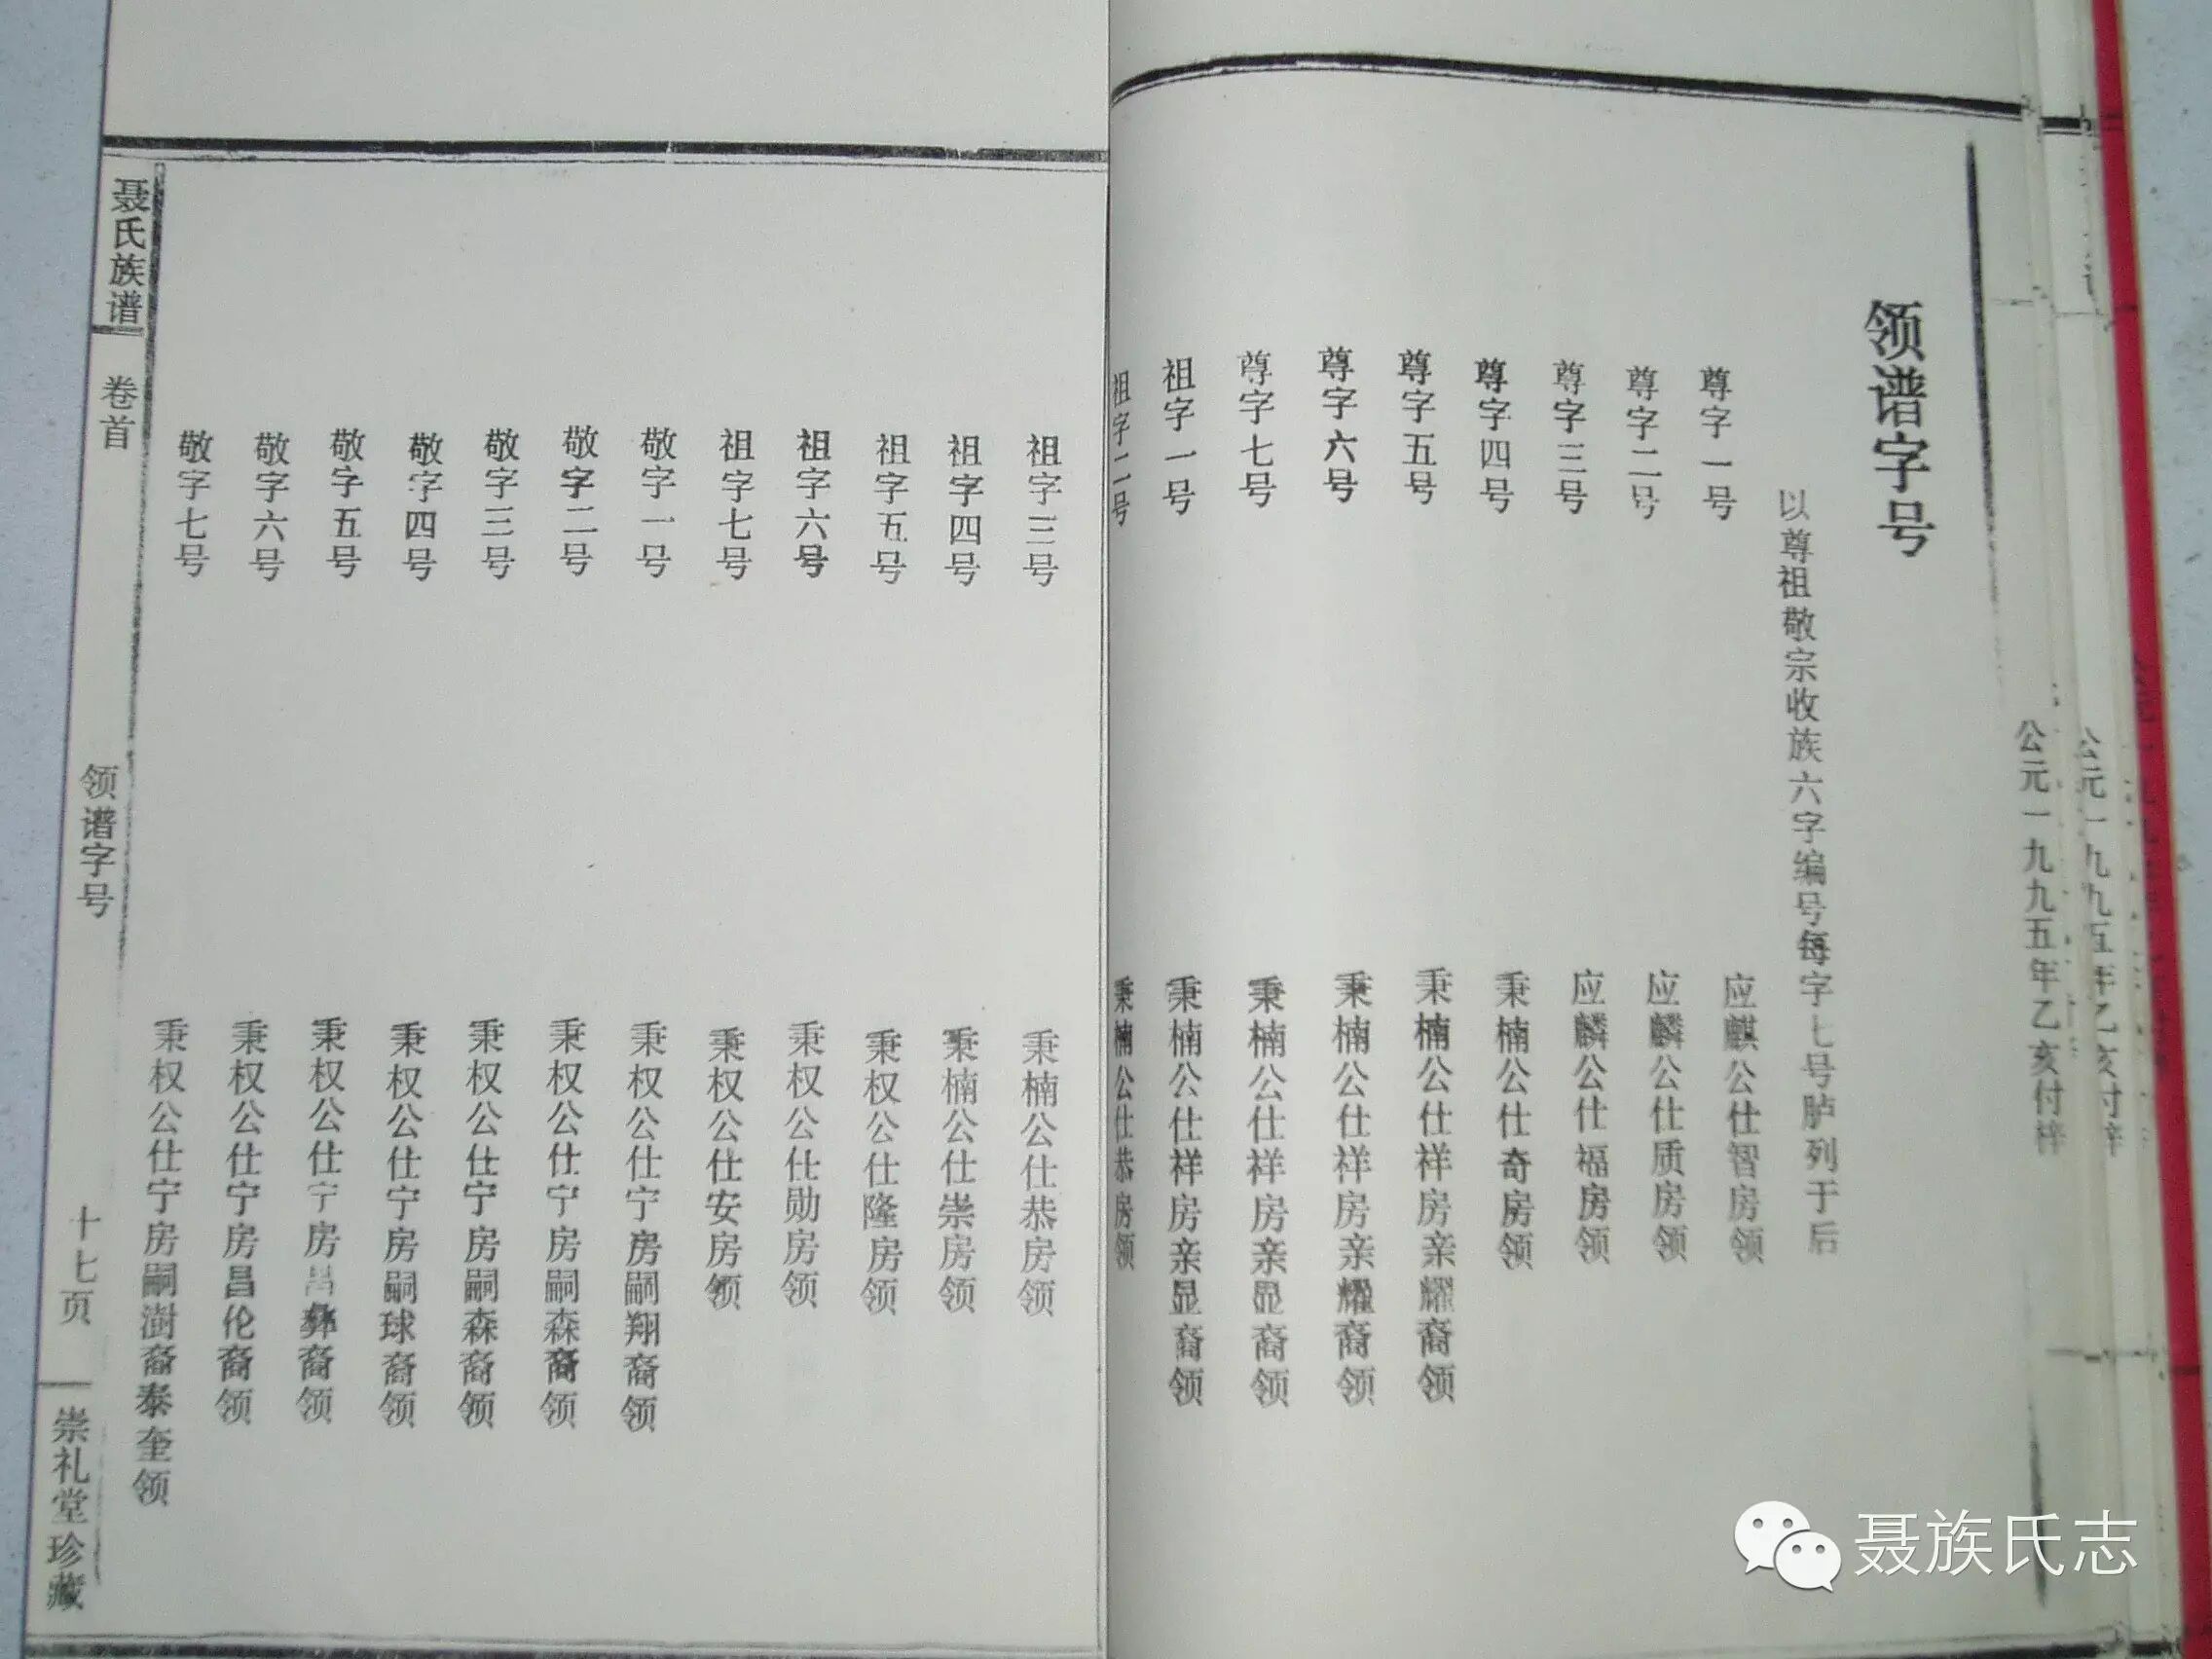 公元一九九五年乙亥付梓
领谱字号
以尊祖敬宗收族六字编号每字七号胪列于后
尊字一号 应麒公仕智房领
尊字二号 应麟公仕质房领
尊字三号 应麟公仕福房领
尊字四号 秉楠公仕奇房领
尊字五号 秉楠公仕祥房亲耀裔领
尊字六号 秉楠公仕祥房亲耀裔领
尊字七号 秉楠公仕祥房亲显裔领
祖字一号 秉楠公仕祥房亲显裔领
祖字二号 秉楠公仕恭房领
祖字三号 秉楠公仕恭房领
祖字四号 秉楠公仕崇房领
祖字五号 秉权公仕隆房领
祖字六号 秉权公仕勋房领
祖字七号 秉权公仕安房领
敬字一号 秉权公仕宁房嗣翔裔领
敬字二号 秉权公仕宁房嗣森裔领
敬字三号 秉权公仕宁房嗣森裔领
敬字四号 秉权公仕宁房嗣球裔领
敬字五号 秉权公仕宁房昌彝裔领
敬字六号 秉权公仕宁房昌伦裔领
敬字七号 秉权公仕宁房嗣澍裔泰奎领
聂氏族谱 卷首 领谱字号 十七页 崇礼堂珍藏
聂族氏志